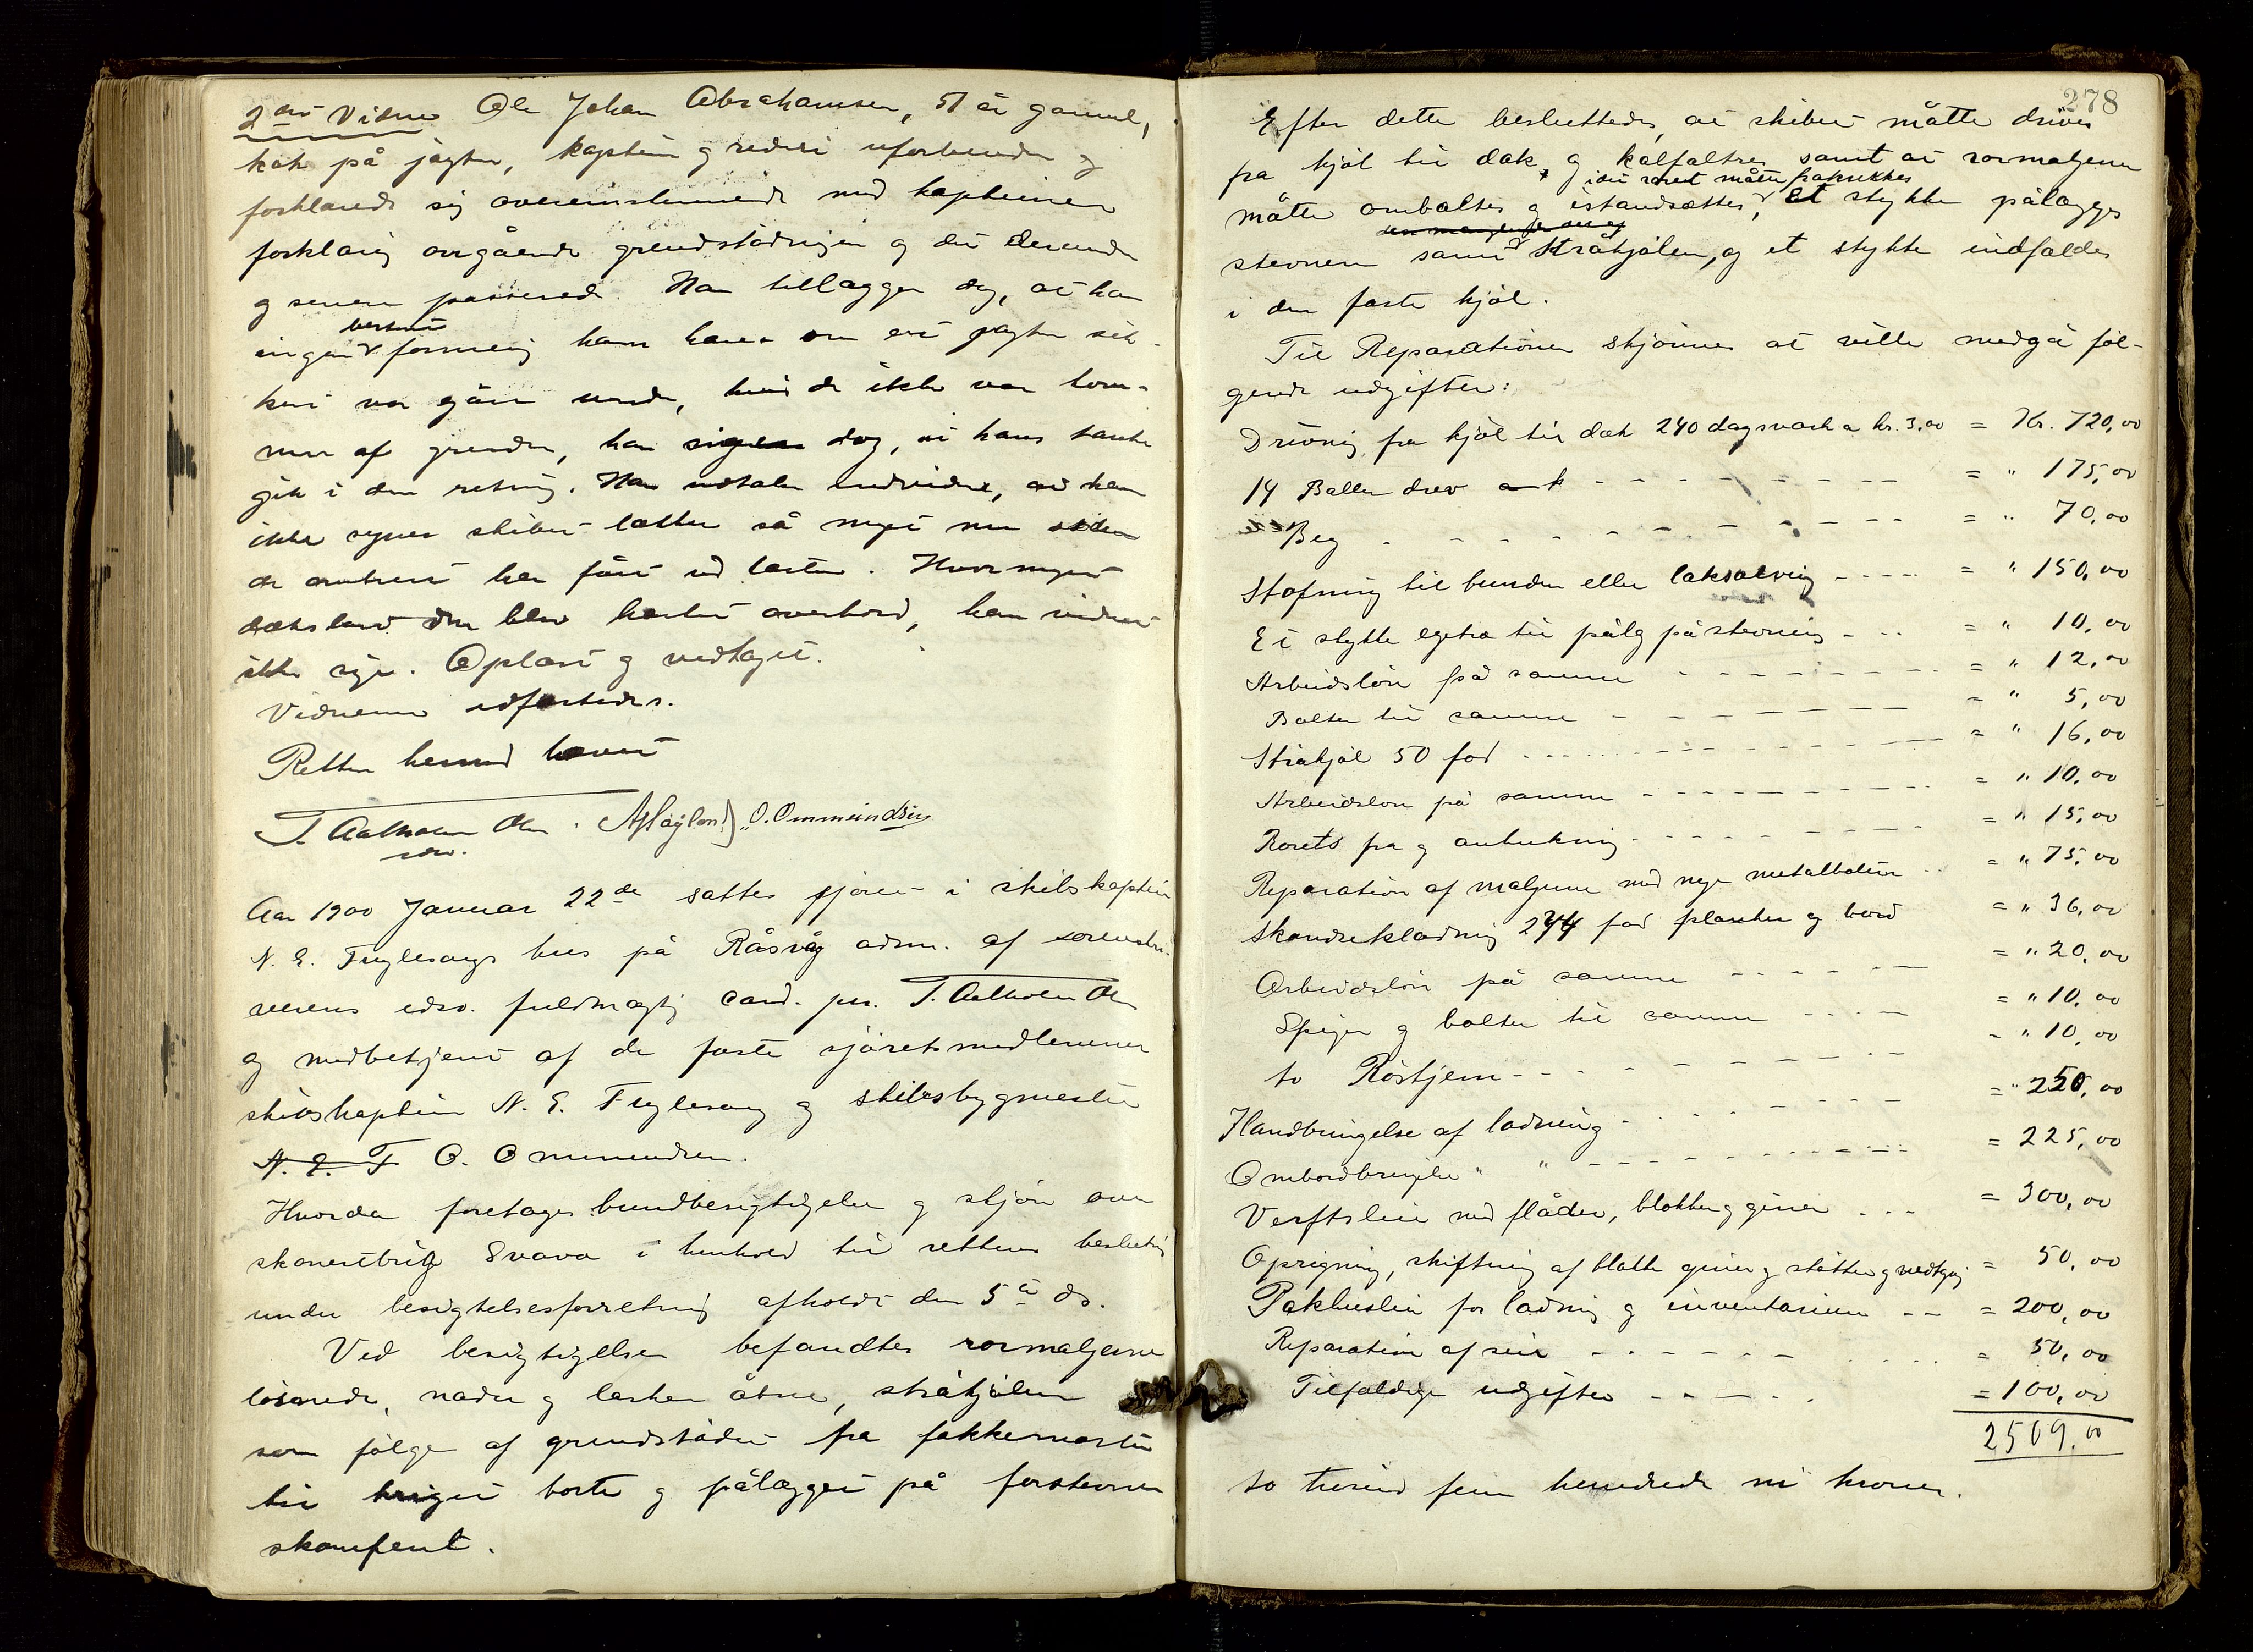 2det Vidne Ole Johan Abrahamsen, 51 år gammel,
kok på jagten, kaptein g rederi uforbunden g
forklarede sig overeinstemmende med kapteinens
forklaring angående grundstødningen g det derunder
g senere passerede. Han tillægger dog, at han
bestemt
ingen formening kan have om ent jagten sik-
kert var gået under, hvis de ikke var kom-
men af grunden, han siger dog, at hans tanke
gik i den retning. Han udtaler endvidere, at han
ikke synes skibet lætter så meget nu siden
de omtrent har fået ud lasten. Hvormeget
dækslast der blev kastet overbord, kan vidnet
ikke sige. Oplæst g vedtaget.
Vidnerne edfæstedes.
Retten hermed hævet
T. Aalholm Olsen . O. Ommundsen
Aar 1900 Januar 22de sattes sjøret i skibskaptein
N. E. Fuglesangs hus på Råsvåg adm. af sorenskri-
verens edsv. fuldmægtig cand. jur. T. Aalholm Olsen
g medbetjent af de faste sjøretsmedlemmer
skibskaptein N. E. Fuglesang g skibsbygmester
N. E. F O. Ommundsen.
Hvorda foretages bundbesigtigelse g skjøn over
skonnertbrig Svava i henhold til rettens beslutning
under besigtelsesforretning afholdt den 5te ds.
Ved besigtigelsen befandtes rormaljerne
løsnede, nader g lasker åbne, stråkjølen
som følge af grundstødet fra fokkemasten
til borte g pålægget på forstevnen
skamfent.
278
Efter dette besluttedes, at skibet måtte drives
fra kjøl til dæk g kalfaltres samt at rormaljerne
i det roret måtte frahukkes
måtte ombaltes g istandsættes, Et stykke pålægges
stevnen samt Stråkjølen, g et stykke indfældes
i den faste kjøl.
Til Reparationen skjønnes at ville medgå føl-
gende udgifter:
Drivning fra kjøl til dæk 240 dagsværk a kr. 3,00 = Kr. 720,00
14 Baller drev - - - - = " 175,00
Beg - - - - = " 70,00
Stofning til bunden eller laksalving - - - - = " 150,00
Et stykke egetræ til pålæg på stevnen - - - = " 10,00
Arbeidsløn på samme - - - - = " 12,00
Bolter til samme - - - - = " 5,00
Stråkjøl 50 fod - - - - = " 16,00
Arbeidsløn på samme - - - - = " 10,00
Rorets fra g anhukning - - - - = " 15,00
Reparation af maljerne med nye metalbolter - - = " 75,00
Skandseklædning 244 fod planker g bord = " 36,00
Arbeidsløn på samme - - - - = " 20,00
Spiger g bolter til samme - - - - = " 10,00
to Røstjern - - - - = " 10,00
Ilandbringelse af ladning - - - - = " 250,00
Ombordbringelse " " - - - - = 225,00
Verftsleie med flåder, blokker g giner - - - = 300,00
Oprigning, skiftning af blokke giner g støtter g nedtagng = 50,00
Pakhusleie for ladning g inventarium - - = 200,00
Reparation af seil - - - - = 50,00
Tilfældige udgifter - - - - = 100,00
2509.00
to tusind fem hundrede ni kroner.